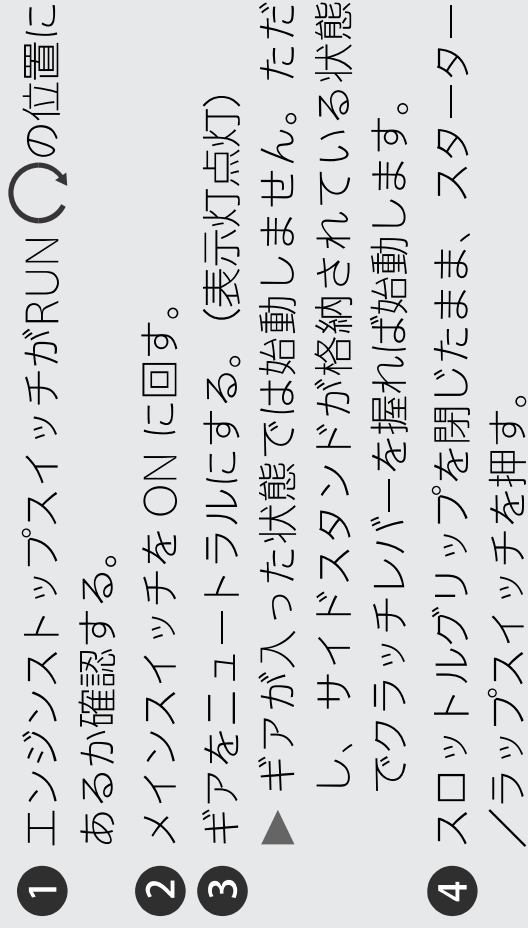 1 エンジンストップスイッチがRUN の位置に
あるか確認する。
2 メインスイッチを ON に回す。
3 ギアをニュートラルにする。（表示灯点灯）
▲ ギアが入った状態では始動しません。ただ
し、サイドスタンドが格納されている状態
でクラッチレバーを握れば始動します。
4 スロットルグリップを閉じたまま、スターター
／ラップスイッチを押す。